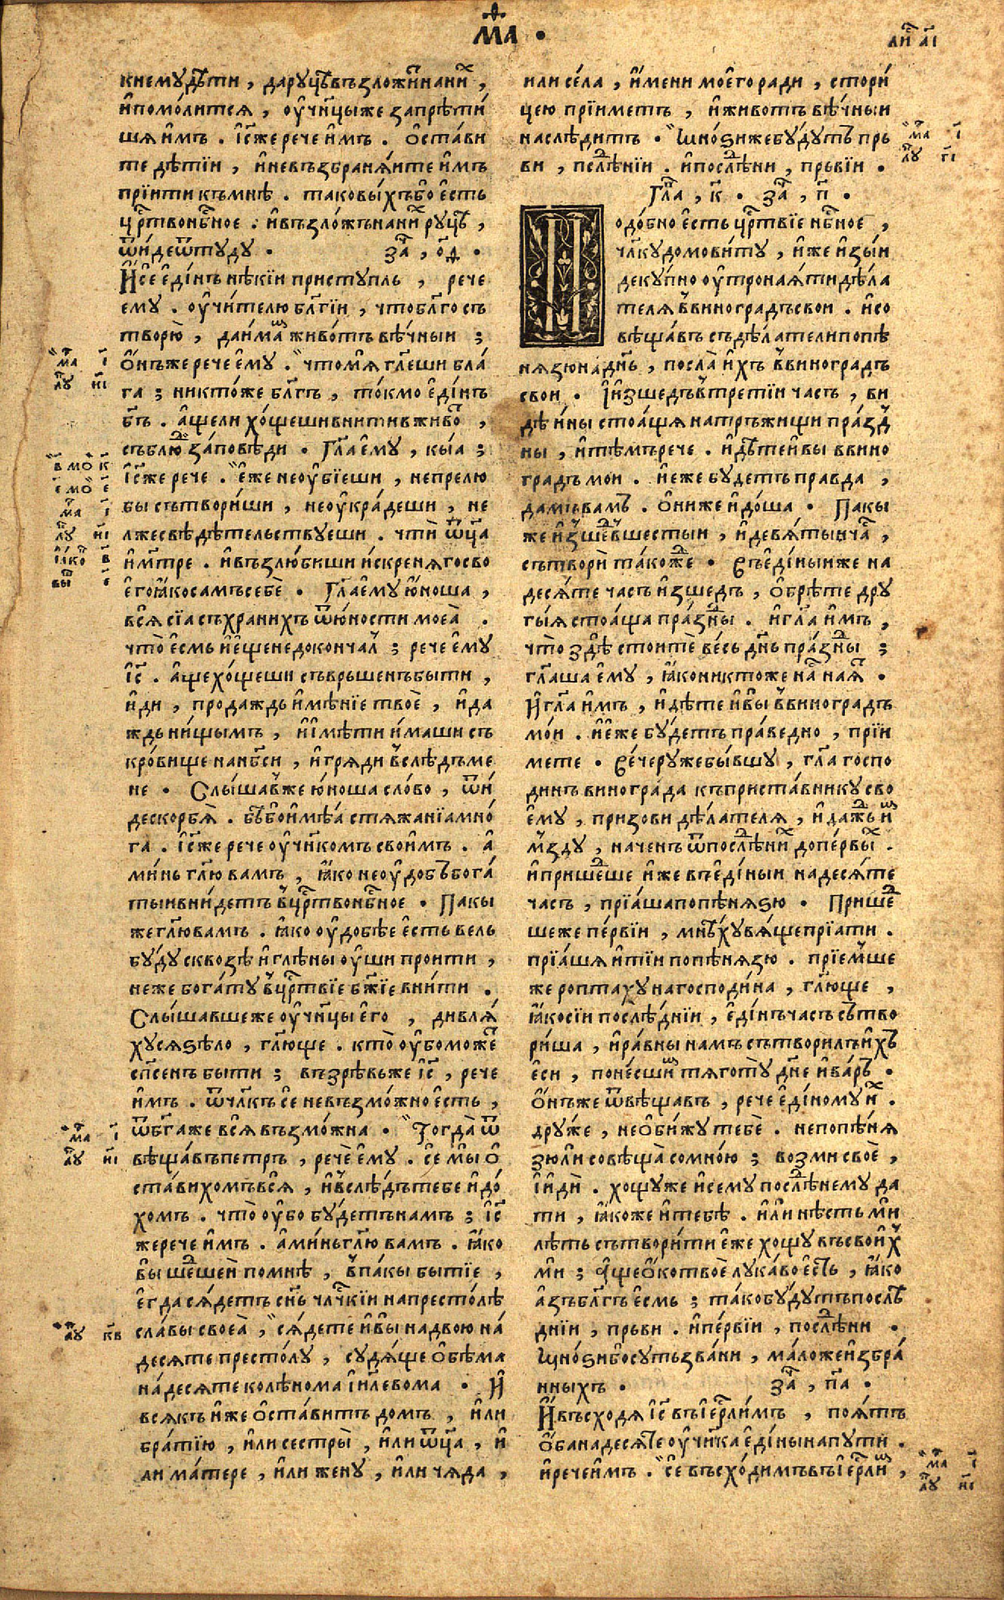 М҃А •
ки емꙋ дѣти , да рꙋцѣ възложи на ни́х ,
и҆ помолится , оу҆чн҃цы же запрѣти́
шя и҆мъ . І҆с҃ же рече и҆мъ . Ѻ҆ста́ви
те дѣтїи , и҆ не възбраня́ите и҆мъ
прїити къ мнѣ . таковы́хъ бо есть
црⷭ҇тво нбⷭ҇ное . и҆ възло́жъ на ни́х рꙋцѣ ,
ѿи́де ѿтꙋдꙋ • за҃ , ѻ҃д •
И҆ се е҆ди́нъ нѣкїи пристꙋпль , рече
емꙋ . оу҆чи́телю бл҃гїи , что бл҃го съ
творю̀ , да и҆мамъ живо́тъ вѣ́чныи ;
Ѻ҆нъ же рече е҆мꙋ . что мя́ гл҃еши бла́
га ; никто́же бл҃гъ , то́кмо е҆ди́нъ
бг҃ъ . а҆ще ли хо́щеши вни́ти в живо́т ,
съблюди за́повѣди • Гл҃а е҆мꙋ , кы́а ;
І҆с҃ же рече . е҆́же не оу҆бїеши , не прелю
бы сътвори́ши , не оу҆кра́деши , не
лжесвѣдѣтельствꙋеши . чтѝ ѿц҃а
и҆ мт҃ре . и҆ възлю́биши и҆́скреняго сво
его ꙗ҆́ко самъ себѐ • Гл҃а е҆мꙋ ю҆́ноша ,
вся сїа съхрани́хъ ѿ ю҆́ности моеа̀ .
что̀ е҆́смь и҆ е҆ще не доконча́лъ ; рече е҆мꙋ
І҆с҃ . а҆́ще хо́щеши съврьшенъ бы́ти ,
и҆ди , прода́ждь и҆мѣ́нїе твоѐ , и҆ да
ждь ни́щымъ , и҆ и҆мѣ́ти и҆́маши съ
кро́вище на нб҃си , и҆ гряди в слѣ́дъ ме
не • Слы́шавже ю҆́ноша сло́во , ѿи́
де скорбя̀ . бѣ́ бо и҆мѣ́а стяжа́нїа мно́
га . І҆с҃ же рече оу҆чн҃комъ свои́мъ . а҆
ми́нь гл҃ю вамъ , ꙗ҆́ко не оу҆до́бь бога́
тыи вни́детъ в црⷭ҇тво нбⷭ҇ное • Пакы
же гл҃ю вамъ . ꙗ҆́ко оу҆до́бѣе е҆сть вель
бꙋ́дꙋ сквозѣ́ и҆глѣны оу҆́ши проити ,
неже бога́тꙋ в црⷭ҇твїе бж҃їе вни́ти .
Слы́шавше же оу҆чн҃цы е҆го̀ , дивля́
хꙋся ѕѣло , гл҃юще . кто̀ оу҆́бо може́тъ
спс҃енъ быти ; възрѣ́вь же І҆с҃ , рече
и҆мъ . ѿ чл҃къ се невъзмо́жно е҆сть ,
ѿ бг҃а же вся̀ възмо́жна • Тогда̀ ѿ
вѣща́въ петръ , речѐ е҆мꙋ . се мы̀ ѻ҆
ста́вихомъ вся̀ , и҆ в слѣ́дъ тебе и҆до́
хомъ . что̀ оу҆́бо бꙋ́детъ намъ ; І҆с҃
же рече и҆мъ . ами́нь гл҃ю вамъ . ꙗ҆́ко
вы ше́дшеи по мнѣ , в пакы бытїе ,
е҆гда ся́детъ сн҃ъ чл҃чкїи на престо́лѣ
сла́вы своеа̀ , ся́дете и҆ вы на двою на́
десяте престо́лꙋ , сꙋдя́ще ѻ҆бѣ́ма
на́десяте колѣ́нома і҆и҃левома • И҆
всякъ и҆же ѻ҆ста́витъ домъ , и҆ли
бра́тїю , и҆́ли сестры̀ , и҆́ли ѿц҃а , и҆
ли ма́тере , и҆́ли женꙋ , и҆́ли ча́да ,
или се́ла , и҆́мени моего̀ ра́ди , сто́ри
цею прїи́метъ , и҆ живо́тъ вѣ́чныи
наслѣ́дитъ • Мно́ѕи же бꙋ́дꙋтъ прь
ви , пслѣ́нїи . и҆ послѣдни , прьвїи •
Гл҃а , к҃ • за҃ , п҃ •
Подо́бно е҆сть црⷭ҇твїе нбⷭ҇ное ,
чл҃кꙋ домови́тꙋ , и҆́же и҆зы́и
де кꙋ́пно оу҆́тро ная́ти дѣ́ла
теля в виногра́дъ свои . и҆ со
вѣща́въ съ дѣ́лателипо пѣ́
нязю на́ днь , посла̀ и҆хъ в виногра́дъ
свои . И҆ и҆зше́дъ в тре́тїи часъ , ви
дѣ и҆́ны стоа́щя на тръ́жищи пра́зд
ны , и҆ тѣмъ рече . и҆дѣ́те и҆ вы в вино
градъ мо́и . и҆ е҆́же бꙋ́детъ пра́вда ,
да́мь вамъ . Ѻ҆ни же и҆до́ша • Пакы
же и҆зше́д в шесты́и , и҆ девя́тыи ча́с ,
сътворѝ та́коже • Въ е҆ди́ныи же на
десяте часъ и҆зшедъ , ѻ҆брѣ́те дрꙋ
гы́я стоа́ща пра́здны . и҆ гл҃а и҆мъ ,
что̀ здѣ̀ стоитѐ ве́сь днь пра́здны ;
гл҃аша е҆мꙋ , ꙗ҆́ко никтоже на́с ная́т •
И҆ гл҃а и҆мъ , и҆дѣ́те и҆ вы в виногра́дъ
мо́и . и҆ е҆́же бꙋ́детъ пра́ведно , прїи
мете • Ве́черꙋ же бы́вшꙋ , гл҃а госпо
ди́нъ виногра́да къ приста́вникꙋ сво
емꙋ , призови дѣ́лателя , и҆ да́жь и҆мъ
мъздꙋ , наче́нъ ѿ послѣ́дних до пе́рвых .
и҆ прише́дше и҆́же въ е҆ди́ныи на́десяте
часъ , прїа́ша по пѣ́нязю • Прише́д
ше же пе́рвїи , мнѣ́хꙋ вя́щше прїати .
прїа́шя и҆ тїи по пѣ́нязю . прїе́мше
же ропта́хꙋ на господи́на , гл҃юще ,
ꙗ҆́ко сїи послѣ́днїи , е҆ди́нъ часъ сътво
ри́ша , и҆ ра́вны намъ сътвори́лъ и҆хъ
е҆си , поне́сшимъ тяготꙋ̀ дне и҆ ва́ръ •
Ѻ҆нъ же ѿвѣща́въ , рече е҆ди́номꙋ и҆х .
дрꙋже , не ѻ҆би́жꙋ тебѐ . не по пѣ́ня
зю ли совѣща̀ со мно́ю ; возми своѐ ,
и҆ и҆дѝ . хощꙋ же и҆ семꙋ послѣ́днемꙋ да
ти , ꙗ҆́коже и҆ тебѣ̀ . и҆ли нѣ́сть ми
лѣть сътвори́ти е҆́же хощꙋ въ свои́х
ми ; а҆ще ѻ҆́ко твоѐ лꙋка́во е҆сть , ꙗ҆́ко
а҆зъ бл҃гъ е҆смь ; та́ко бꙋ́дꙋтъ послѣ́
днїи , прьви . и҆ пе́рвїи , послѣ́дни .
Мно́ѕи бо сꙋть зва́ни , ма́ло же и҆збра́
нныхъ • за҃ , п҃а •
И҆ въсходя І҆с҃ въ і҆ерⷭ҇ли́мъ , поя́тъ
ѻ҆бана́десяте оу҆чн҃ка е҆ди́ны на пꙋти .
и҆ рече и҆мъ . се въсхо́димъ въ і҆ерⷭ҇ли́мъ ,